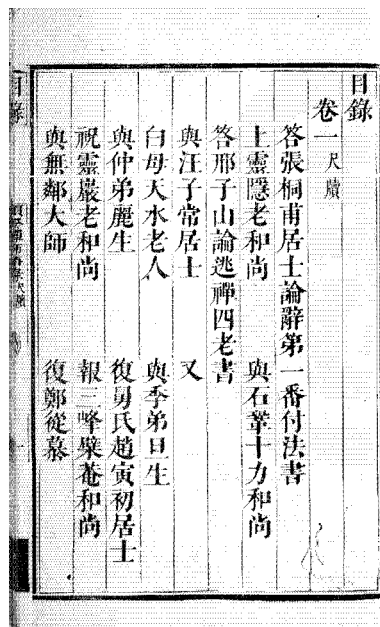 目錄
卷一尺牘
答張桐甫居士論辭第一番付法書
上靈隱老和尚 與石葦十力和尚
答邢子山論逃禪四老書
與汪子常居士 又
白母天水老人 與季弟日生
與仲弟麗生 復舅氏趙寅初居士
祝靈巖老和尚 報三峰檗菴和尚
與無鄰大師 復鄭從慕
目錄